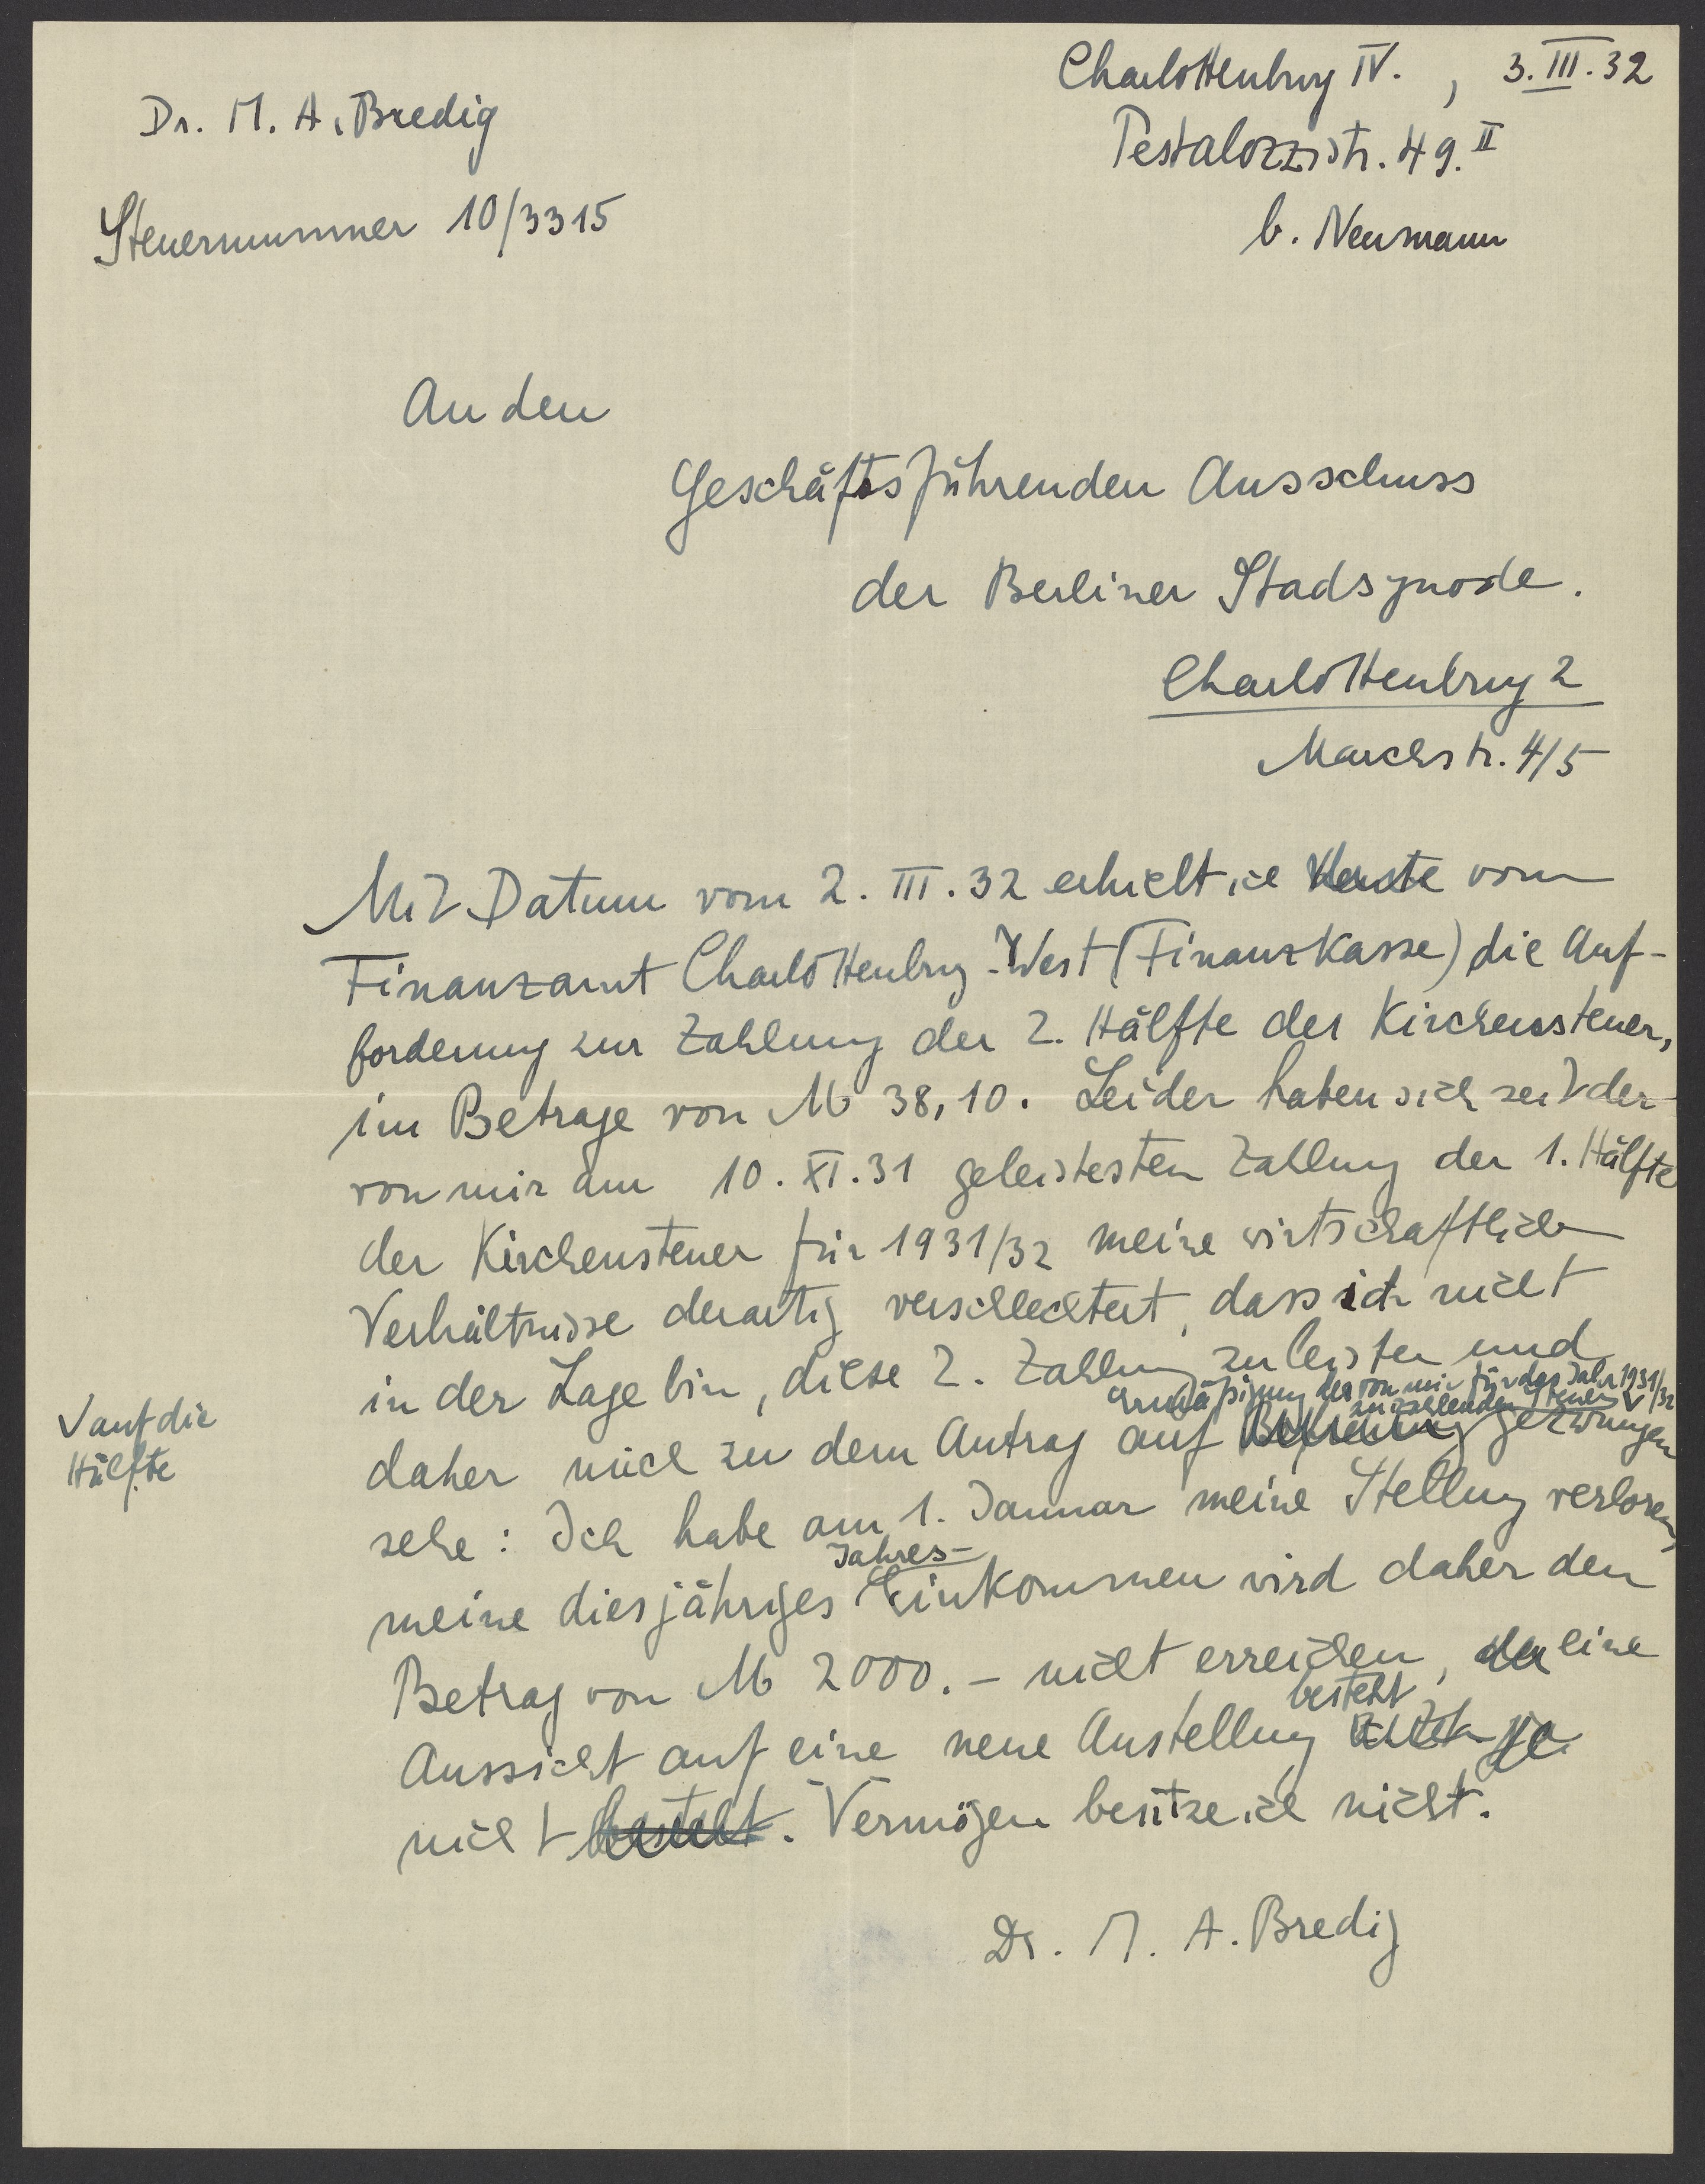 Charlottenburg IV. , 3.III.32
Dr. M. A. Bredig
Pestalozzistr. 49.II
Steuernummer 10/3315
b. Neumann
An den
Geschäftsführenden Ausschuss
der Berliner Stadsynode.
Charlottenburg 2
Marchstr. 4/5
Mit Datum vom 2. III. 32 erhielt ich heute vom
Finanzamt Charlottenburg-West (Finanzkasse) die Auf-
forderung zur Zahlung der 2. Hälfte der Kirchensteuer,
im Betrage von M 38,10. Leider haben sich seit der
von mir am 10. XI. 31 geleistesten Zahlung der 1. Hälfte
der Kirchensteuer für 1931/32 meine wirtschaftlichen
Verhältnisse derartig verschlechtert, dass ich nicht
in der Lage bin, diese 2. Zahlung zu leisten und
Ermäßigung der von mir für das Jahr 1931/32
zu zahlenden Steuer V
V auf die
Hälfte
daher mich zu dem Antrag auf Befreiung gezwungen
sehe: Ich habe am 1. Januar meine Stellung verloren,
Jahres-
meine diesjähriges Einkommen wird daher den
Betrag von M 2000.- nicht erreichen, da eine
besteht
Aussicht auf eine neue Anstellung ja
nicht besteht. Vermögen besitze ich nicht.
Dr. M. A. Bredig